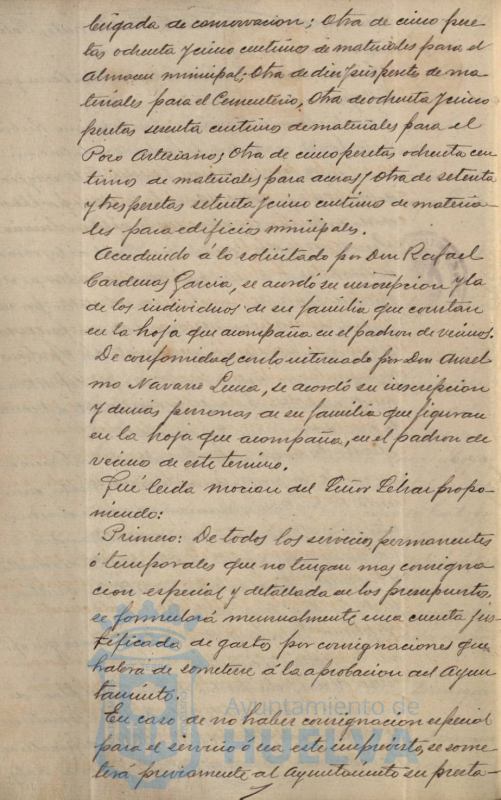 brigada de conservacion; Otra de cinco pese-
tas ochenta y cinco centimos de materiales para el
Almacen municipal; Otra de diez y seis pesetas de ma-
teriales para el Cementerio, Otra de ochenta y cinco
pesetas sesenta centimos de materiales para el
Pozo Artesiano; Otra de cinco pesetas ochenta cen-
timos de materiales para aceras y Otra de setenta
y tres pesetas setenta y cinco centimos de materia-
les para edificios municipales.
Accediendo á lo solicitado por Don Rafael
Cardenas Garcia, se acordó su inscripcion y la
de los individuos de su familia que constan
en la hoja que acompaña en el padron de vecinos.
De conformidad con lo interesado por Don Ansel
mo Navarro Luna, se acordó su inscripcion
y demás personas de su familia que figuran
en la hoja que acompaña, en el padron de
vecino de este termino.
Fué leida mocion del Señor propo-
niendo:
Primero: De todos los servicios permanentes
ó temporales que no tengan mas consigna
cion especial y detallada en los presupuestos.
se formulará mensualmente una cuenta jus-
tificada de gastos por consignaciones que
habrá de someterse á la aprobacion del Ayun
tamiento.
En caso de no haber consignacion especial
para el servicio ó sea este imprevisto, se some
terá previamente al Ayuntamiento su presu-
Ayuntamiento de
HUELVA